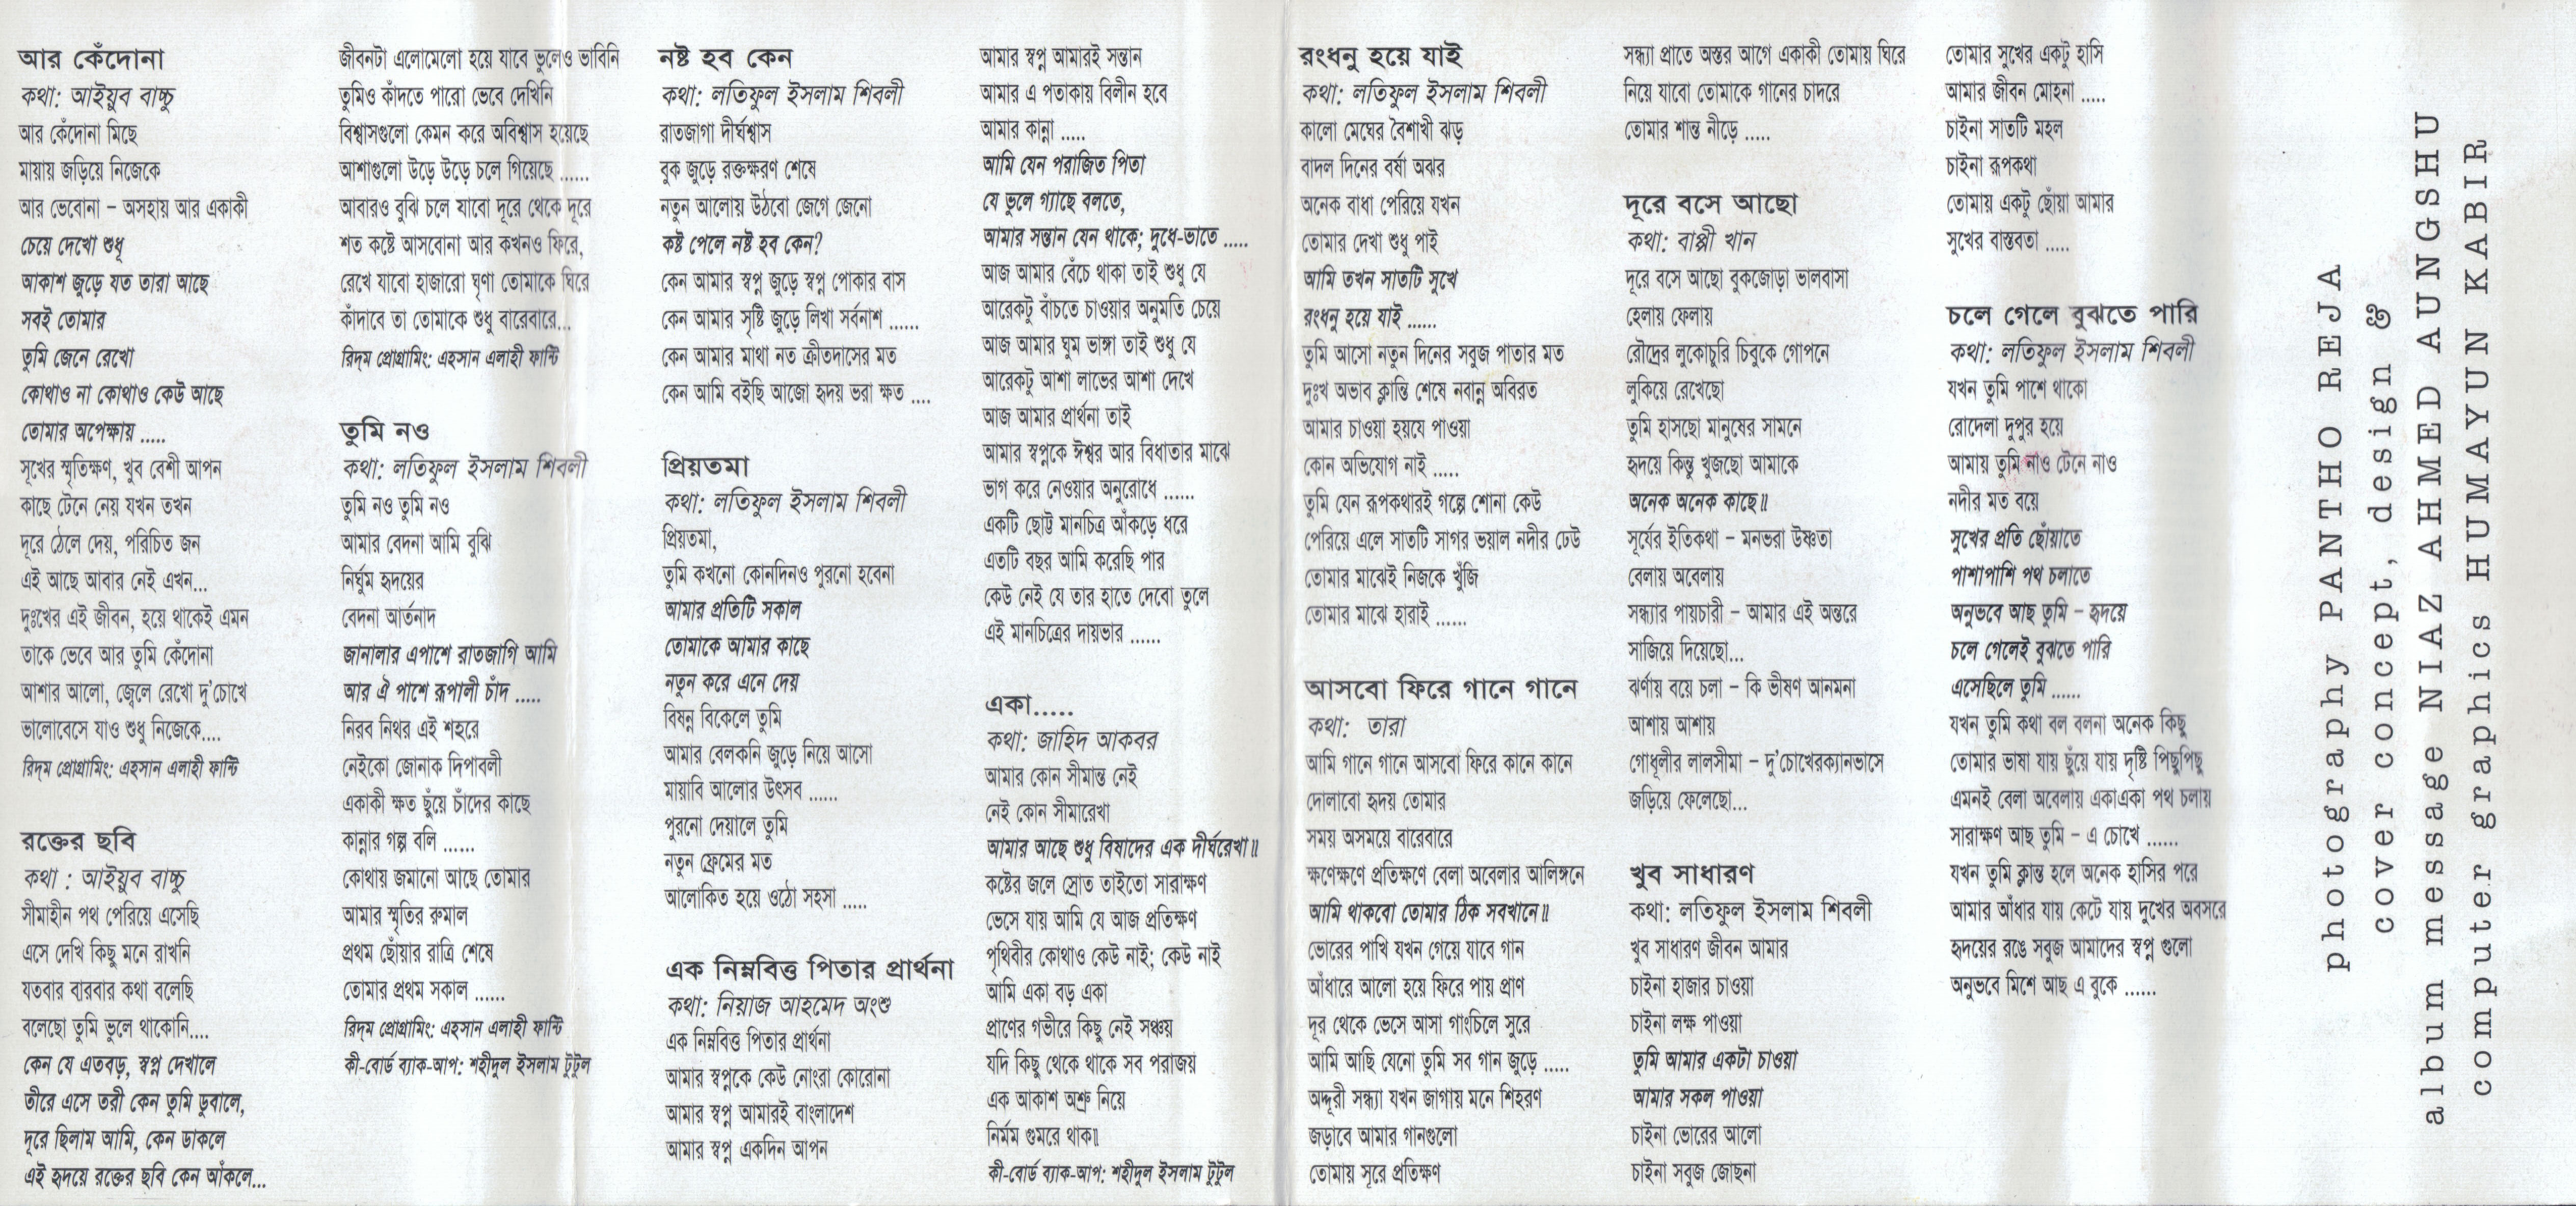 আর কেঁদোনা
কথা: আইয়ুব বাচ্চু
আর কেঁদোনা মিছে
মায়ায় জড়িয়ে নিজেকে
আর ভেবোনা – অসহায় আর একাকী
চেয়ে দেখো শুধু
আকাশ জুড়ে যত তারা আছে
সবই তোমার
তুমি জেনে রেখো
কোথাও না কোথাও কেউ আছে
তোমার অপেক্ষায় .....
সূখের স্মৃতিক্ষণ, খুব বেশী আপন
কাছে টেনে নেয় যখন তখন
দূরে ঠেলে দেয়, পরিচিত জন
এই আছে আবার নেই এখন...
দুঃখের এই জীবন, হয়ে থাকেই এমন
তাকে ভেবে আর তুমি কেঁদোনা
আশার আলো, জ্বেলে রেখো দু'চোখে
ভালোবেসে যাও শুধু নিজেকে....
রিদ্‌ম প্রোগ্রামিং: এহসান এলাহী ফান্টি

রক্তের ছবি
কথা : আইয়ুব বাচ্চু
সীমাহীন পথ পেরিয়ে এসেছি
এসে দেখি কিছু মনে রাখনি
যতবার বারবার কথা বলেছি
বলেছো তুমি ভুলে থাকোনি....
কেন যে এতবড়, স্বপ্ন দেখালে
তীরে এসে তরী কেন তুমি ডুবালে,
দূরে ছিলাম আমি, কেন ডাকলে
এই হৃদয়ে রক্তের ছবি কেন আঁকলে...
জীবনটা এলোমেলো হয়ে যাবে ভুলেও ভাবিনি
তুমিও কাঁদতে পারো ভেবে দেখিনি
বিশ্বাসগুলো কেমন করে অবিশ্বাস হয়েছে
আশাগুলো উড়ে উড়ে চলে গিয়েছে ......
আবারও বুঝি চলে যাবো দূরে থেকে দূরে
শত কষ্টে আসবোনা আর কখনও ফিরে,
রেখে যাবো হাজারো ঘৃণা তোমাকে ঘিরে
কাঁদাবে তা তোমাকে শুধু বারেবারে...
রিদ্‌ম প্রোগ্রামিং: এহসান এলাহী ফান্টি

তুমি নও
কথা: লতিফুল ইসলাম শিবলী
তুমি নও তুমি নও
আমার বেদনা আমি বুঝি
নির্ঘুম হৃদয়ের
বেদনা আর্তনাদ
জানালার এপাশে রাতজাগি আমি
আর ঐ পাশে রূপালী চাঁদ .....
নিরব নিথর এই শহরে
নেইকো জোনাক দিপাবলী
একাকী ক্ষত ছুঁয়ে চাঁদের কাছে
কান্নার গল্প বলি ......
কোথায় জমানো আছে তোমার
আমার স্মৃতির রুমাল
প্রথম ছোঁয়ার রাত্রি শেষে
তোমার প্রথম সকাল ......
রিদ্‌ম প্রোগ্রামিং: এহসান এলাহী ফান্টি
কী-বোর্ড ব্যাক-আপ: শহীদুল ইসলাম টুটুল

নষ্ট হব কেন
কথা: লতিফুল ইসলাম শিবলী
রাতজাগা দীর্ঘশ্বাস
বুক জুড়ে রক্তক্ষরণ শেষে
নতুন আলোয় উঠবো জেগে জেনো
কষ্ট পেলে নষ্ট হব কেন?
কেন আমার স্বপ্ন জুড়ে স্বপ্ন পোকার বাস
কেন আমার সৃষ্টি জুড়ে লিখা সর্বনাশ ......
কেন আমার মাথা নত ক্রীতদাসের মত
কেন আমি বইছি আজো হৃদয় ভরা ক্ষত ....

প্রিয়তমা
কথা: লতিফুল ইসলাম শিবলী
প্রিয়তমা,
তুমি কখনো কোনদিনও পুরনো হবেনা
আমার প্রতিটি সকাল
তোমাকে আমার কাছে
নতুন করে এনে দেয়
বিষন্ন বিকেলে তুমি
আমার বেলকনি জুড়ে নিয়ে আসো
মায়াবি আলোর উৎসব ......
পুরনো দেয়ালে তুমি
নতুন ফ্রেমের মত
আলোকিত হয়ে ওঠো সহসা .....

এক নিম্নবিত্ত পিতার প্রার্থনা
কথা: নিয়াজ আহমেদ অংশু
এক নিম্নবিত্ত পিতার প্রার্থনা
আমার স্বপ্নকে কেউ নোংরা কোরোনা
আমার স্বপ্ন আমারই বাংলাদেশ
আমার স্বপ্ন একদিন আপন
আমার স্বপ্ন আমারই সন্তান
আমার এ পতাকায় বিলীন হবে
আমার কান্না .....
আমি যেন পরাজিত পিতা
যে ভুলে গ্যাছে বলতে,
আমার সন্তান যেন থাকে; দুধে-ভাতে .....
আজ আমার বেঁচে থাকা তাই শুধু যে
আরেকটু বাঁচতে চাওয়ার অনুমতি চেয়ে
আজ আমার ঘুম ভাঙ্গা তাই শুধু যে
আরেকটু আশা লাভের আশা দেখে
আজ আমার প্রার্থনা তাই
আমার স্বপ্নকে ঈশ্বর আর বিধাতার মাঝে
ভাগ করে নেওয়ার অনুরোধে ......
একটি ছোট্ট মানচিত্র আঁকড়ে ধরে
এতটি বছর আমি করেছি পার
কেউ নেই যে তার হাতে দেবো তুলে
এই মানচিত্রের দায়ভার ......

একা.....
কথা: জাহিদ আকবর
আমার কোন সীমান্ত নেই
নেই কোন সীমারেখা
আমার আছে শুধু বিষাদের এক দীর্ঘরেখা॥
কষ্টের জলে স্রোত তাইতো সারাক্ষণ
ভেসে যায় আমি যে আজ প্রতিক্ষণ
পৃথিবীর কোথাও কেউ নাই; কেউ নাই
আমি একা বড় একা
প্রাণের গভীরে কিছু নেই সঞ্চয়
যদি কিছু থেকে থাকে সব পরাজয়
এক আকাশ অশ্রু নিয়ে
নির্মম গুমরে থাক॥
কী-বোর্ড ব্যাক-আপ: শহীদুল ইসলাম টুটুল

রংধনু হয়ে যাই
কথা: লতিফুল ইসলাম শিবলী
কালো মেঘের বৈশাখী ঝড়
বাদল দিনের বর্ষা অঝর
অনেক বাধা পেরিয়ে যখন
তোমার দেখা শুধু পাই
আমি তখন সাতটি সুখে
রংধনু হয়ে যাই ......
তুমি আসো নতুন দিনের সবুজ পাতার মত
দুঃখ অভাব ক্লান্তি শেষে নবান্ন অবিরত
আমার চাওয়া হয়যে পাওয়া
কোন অভিযোগ নাই .....
তুমি যেন রূপকথারই গল্পে শোনা কেউ
পেরিয়ে এলে সাতটি সাগর ভয়াল নদীর ঢেউ
তোমার মাঝেই নিজকে খুঁজি
তোমার মাঝে হারাই ......

আসবো ফিরে গানে গানে
কথা: তারা
আমি গানে গানে আসবো ফিরে কানে কানে
দোলাবো হৃদয় তোমার
সময় অসময়ে বারেবারে
ক্ষণেক্ষণে প্রতিক্ষণে বেলা অবেলার আলিঙ্গনে
আমি থাকবো তোমার ঠিক সবখানে॥
ভোরের পাখি যখন গেয়ে যাবে গান
আঁধারে আলো হয়ে ফিরে পায় প্রাণ
দূর থেকে ভেসে আসা গাংচিলে সুরে
আমি আছি যেনো তুমি সব গান জুড়ে .....
অদ্দূরী সন্ধ্যা যখন জাগায় মনে শিহরণ
জড়াবে আমার গানগুলো
তোমায় সুরে প্রতিক্ষণ
সন্ধ্যা প্রাতে অন্তর আগে একাকী তোমায় ঘিরে
নিয়ে যাবো তোমাকে গানের চাদরে
তোমার শান্ত নীড়ে .....

দূরে বসে আছো
কথা: বাপ্পী খান
দূরে বসে আছো বুকজোড়া ভালবাসা
হেলায় ফেলায়
রৌদ্রের লুকোচুরি চিবুকে গোপনে
লুকিয়ে রেখেছো
তুমি হাসছো মানুষের সামনে
হৃদয়ে কিন্তু খুজছো আমাকে
অনেক অনেক কাছে॥
সূর্যের ইতিকথা – মনভরা উষ্ণতা
বেলায় অবেলায়
সন্ধ্যার পায়চারী – আমার এই অন্তরে
সাজিয়ে দিয়েছো...
ঝর্ণায় বয়ে চলা – কি ভীষণ আনমনা
আশায় আশায়
গোধূলীর লালসীমা – দু'চোখেরক্যানভাসে
জড়িয়ে ফেলেছো...

খুব সাধারণ
কথা: লতিফুল ইসলাম শিবলী
খুব সাধারণ জীবন আমার
চাইনা হাজার চাওয়া
চাইনা লক্ষ পাওয়া
তুমি আমার একটা চাওয়া
আমার সকল পাওয়া
চাইনা ভোরের আলো
চাইনা সবুজ জোছনা
তোমার সুখের একটু হাসি
আমার জীবন মোহনা .....
চাইনা সাতটি মহল
চাইনা রূপকথা
তোমায় একটু ছোঁয়া আমার
সুখের বাস্তবতা .....

চলে গেলে বুঝতে পারি
কথা: লতিফুল ইসলাম শিবলী
যখন তুমি পাশে থাকো
রোদেলা দুপুর হয়ে
আমায় তুমি নাও টেনে নাও
নদীর মত বয়ে
সুখের প্রতি ছোঁয়াতে
পাশাপাশি পথ চলাতে
অনুভবে আছ তুমি – হৃদয়ে
চলে গেলেই বুঝতে পারি
এসেছিলে তুমি ......
যখন তুমি কথা বল বলনা অনেক কিছু
তোমার ভাষা যায় ছুঁয়ে যায় দৃষ্টি পিছুপিছু
এমনই বেলা অবেলায় একাএকা পথ চলায়
সারাক্ষণ আছ তুমি – এ চোখে ......
যখন তুমি ক্লান্ত হলে অনেক হাসির পরে
আমার আঁধার যায় কেটে যায় দুখের অবসরে
হৃদয়ের রঙে সবুজ আমাদের স্বপ্ন গুলো
অনুভবে মিশে আছ এ বুকে ......

photography PANTHO REJA
cover concept, design &
album message NIAZ AHMED AUNGSHU
computer graphics HUMAYUN KABIR